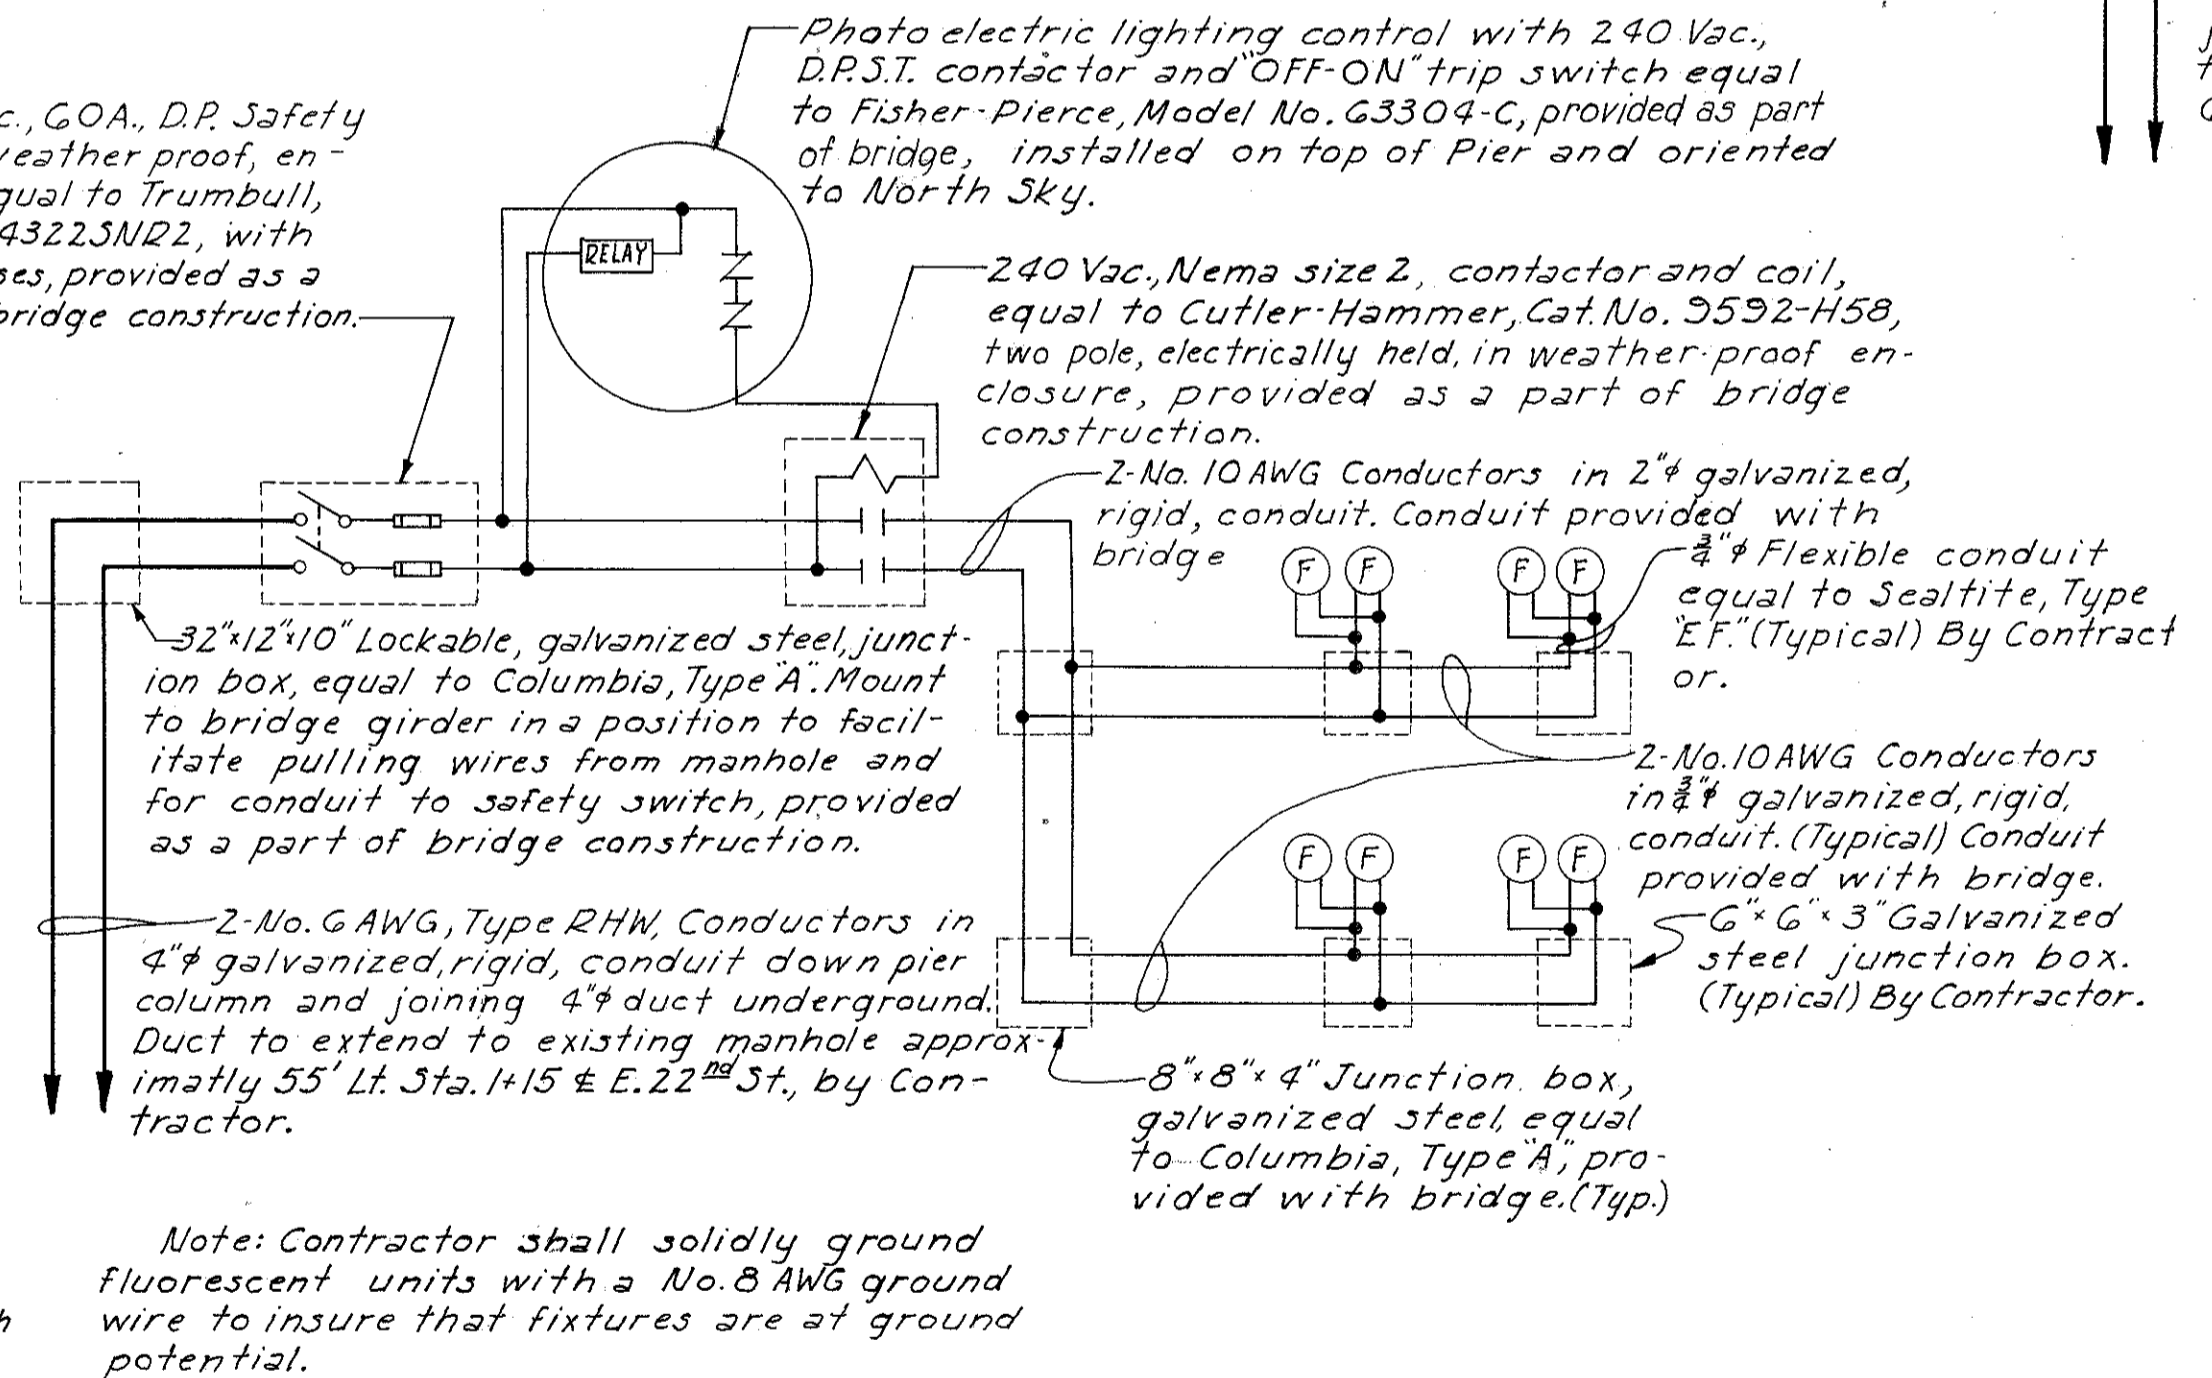 Photo electric lighting control with 240 Vac.,
D.P.S.T. contactor and "OFF-ON" trip switch equal
to Fisher-Pierce, Model No. 63304-C, provided as part
of bridge, installed on top of Pier and oriented
to North Sky.
c., 60A., D.P. Safety
weather proof, en-
qual to Trumbull,
4322SNR2, with
ses, provided as a
bridge construction.
RELAY
240 Vac., Nema size 2, contactor and coil,
equal to Cutler-Hammer, Cat. No. 9592-H58,
two pole, electrically held, in weather-proof en-
closure, provided as a part of bridge
construction.
2-No. 10 AWG Conductors in 2"ϕ galvanized,
rigid, conduit. Conduit provided with
bridge
F F F F
3/4"ϕ Flexible conduit
equal to Sealtite, Type
"EF." (Typical) By Contract
or.
32"x12"x10" Lockable, galvanized steel, junct-
ion box, equal to Columbia, Type "A". Mount
to bridge girder in a position to facil-
itate pulling wires from manhole and
for conduit to safety switch, provided
as a part of bridge construction.
2-No. 10 AWG Conductors
in 3/4"ϕ galvanized, rigid,
conduit. (Typical) Conduit
provided with bridge.
F F F F
6"x 6"x 3" Galvanized
steel junction box.
(Typical) By Contractor.
2-No. 6 AWG, Type RHW, Conductors in
4"ϕ galvanized, rigid, conduit down pier
column and joining 4"ϕ duct underground.
Duct to extend to existing manhole approx-
imatly 55' Lt. Sta. 1+15 ℄ E. 22nd St., by Con-
tractor.
8"x8"x 4" Junction box,
galvanized steel, equal
to Columbia, Type "A", pro-
vided with bridge. (Typ.)
Note: Contractor shall solidly ground
fluorescent units with a No. 8 AWG ground
wire to insure that fixtures are at ground
potential.